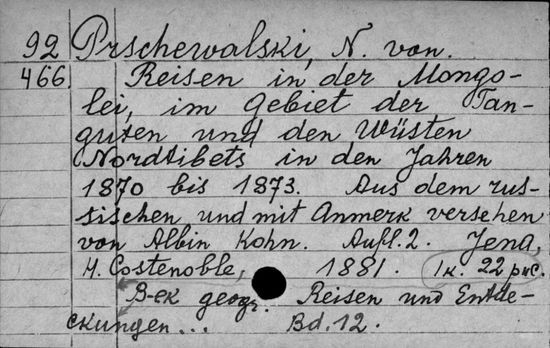 92 Prschewalski, N. von.
466 Reisen in der Mongo-
lei, im Gebiet der Tan-
guten und den Wüsten
Nordtibets in den Jahren
1870 bis 1873. Aus dem rus-
sischen und mit Anmerk versehen
von Albin Kohn. Aufl. 2. Jena,
H. Costenoble, 1881. 1 к. 22 рис.
B-ek geogr. Reisen und Entde-
ckungen... Bd. 12.